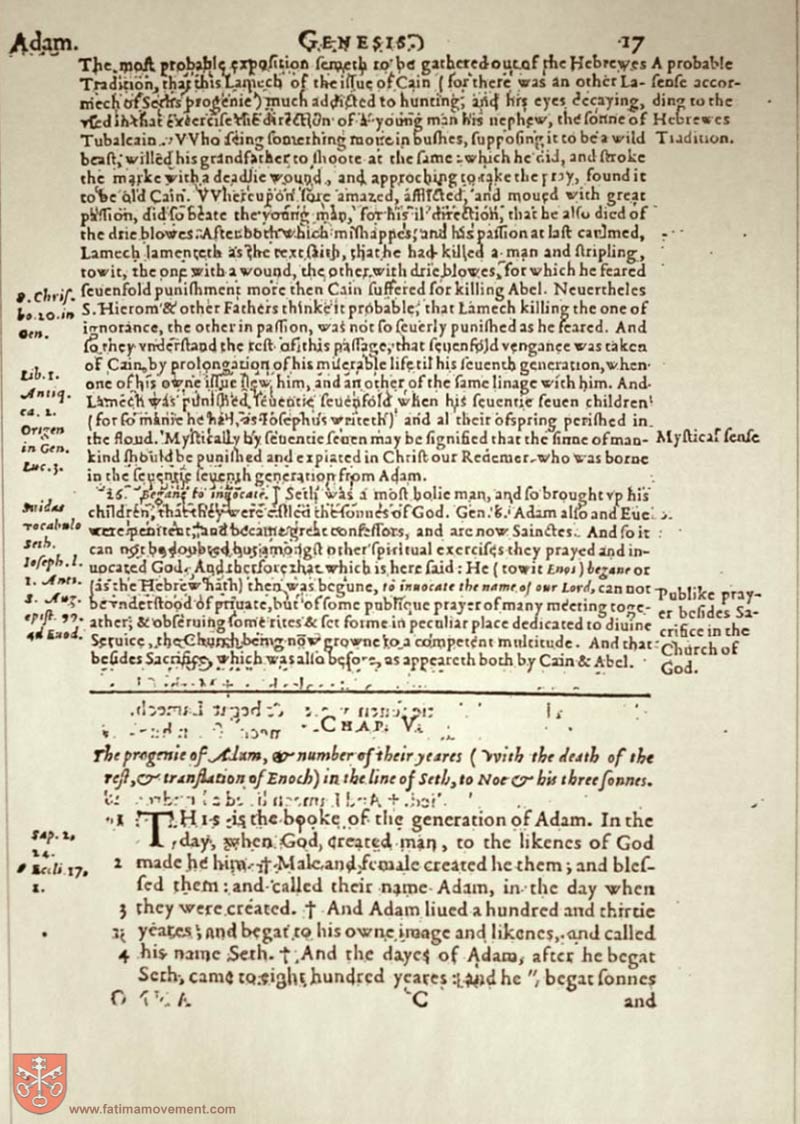 Adam. GENESIS 17
The most probable exposition semeth to be gathered out of the Hebrewes
Tradition, that this Lamech of the issue of Cain (for there was an other La-
mech of Seths progenie) much addicted to hunting, and his eyes decaying,
vsed in that exercise the direction of a young man his nephew, the sonne of
Tubalcain. VVho seing something moue in bushes, supposing it to be a wild
beast, willed his grandfather to shoote at the same: which he did, and stroke
the marke with a deadlie wound, and approching to take the pray, found it
to be old Cain. VVhereupon sore amazed, afflicted, and moued with great
passion, did so beate the young man, for his il direction, that he also died of
the drie blowes. After both which mishappes, and his passion at last calmed,
Lamech lamenteth as the text saith, that he had killed a man and stripling,
to wit, the one with a wound, the other with drie blowes, for which he feared
seuenfold punishment more then Cain suffered for killing Abel. Neuertheles
S. Hierom & other Fathers thinke it probable, that Lamech killing the one of
ignorance, the other in passion, was not so seuerly punished as he feared. And
so they vnderstand the rest of this passage, that seuenfold vengance was taken
of Cain, by prolongation of his miserable life til his seuenth generation, when
one of his owne issue slew him, and an other of the same linage with him. And
Lamech was punished seuentie seuenfold when his seuentie seuen children
(for so manie he had, as Iosephus writeth) and al their ofspring perished in
the floud. Mystically by seuentie seuen may be signified that the sinne of man-
kind should be punished and expiated in Christ our Redemer, who was borne
in the seuentie seuenth generation from Adam.
26. Began to inuocate.] Seth was a most holie man, and so brought vp his
children, that they were called the sonnes of God. Gen. 6. Adam also and Eue
were penitent, and became great confessors, and are now Sainctes. And so it
can not be doubted but amongst other spiritual exercises they prayed and in-
uocated God. And therfore that which is here said: He (to wit Enos) began or
(as the Hebrew hath) then was begune, to inuocate the name of our Lord, can not
be vnderstood of priuate, but of some publique prayer of many meeting toge-
ather, & obseruing some rites & set forme in peculiar place dedicated to diuine
Seruice, the Church being now growne to a competent multitude. And that
besides Sacrifice, which was also before, as appeareth both by Cain & Abel.
A probable
sense accor-
ding to the
Hebrewes
Tradition.
S. Chris.
ho. 20. in
Gen.
Lib. 1.
Antiq.
ca. 2.
Origen
in Gen.
Luc. 3.
Mystical sense
Suidas
vocabulo
Seth.
Ioseph. l.
1. Antiq.
S. Aug.
in Exod.
Publike pray-
er besides Sa-
crifice in the
Church of
God.
CHAP. V.
The progenie of Adam, & number of their yeares (with the death of the
rest, & translation of Enoch) in the line of Seth, to Noe & his three sonnes.
1 THIS is the booke of the generation of Adam. In the
day, when God created man, to the likenes of God
2 made he him. † Male and female created he them; and bles-
sed them: and called their name Adam, in the day when
3 they were created. † And Adam liued a hundred and thirtie
yeares; and begat to his owne image and likenes, and called
4 his name Seth. † And the dayes of Adam, after he begat
Seth, came to eight hundred yeares: and he " begat sonnes
Sap. 2,
24.
Eccli. 17,
1.
C and
www.fatimamovement.com